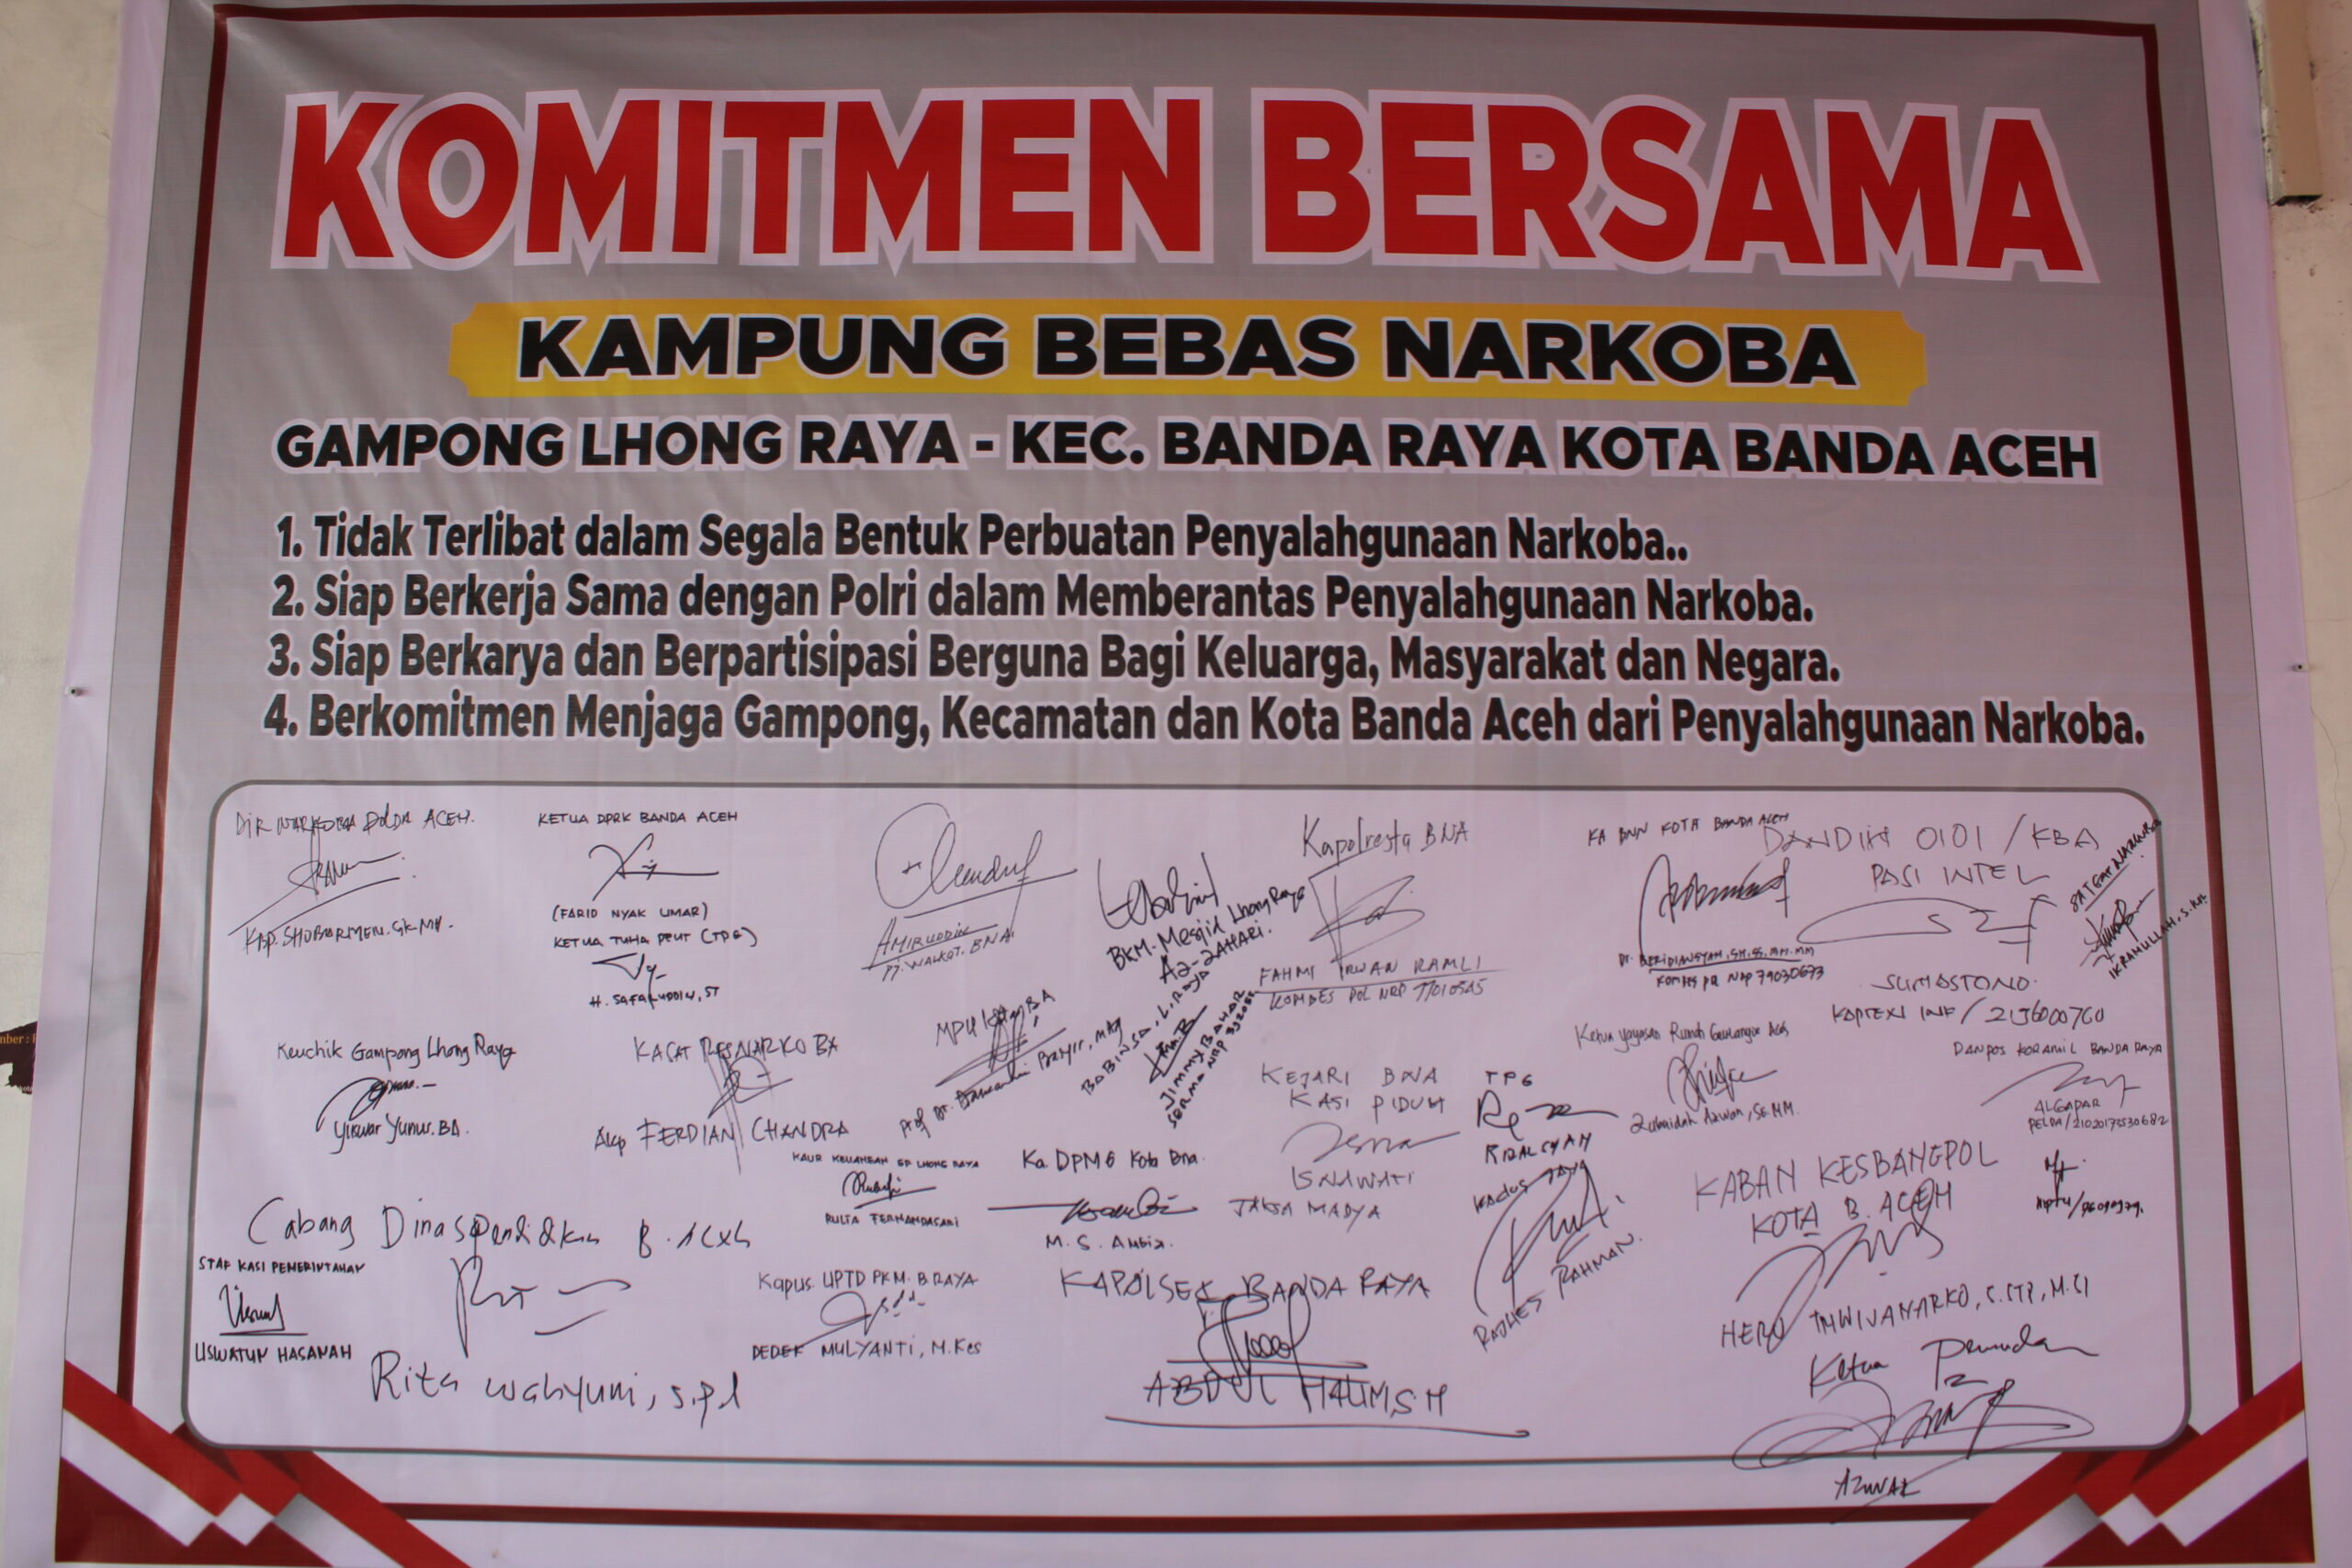 KOMITMEN BERSAMA
KAMPUNG BEBAS NARKOBA
GAMPONG LHONG RAYA - KEC. BANDA RAYA KOTA BANDA ACEH
1. Tidak Terlibat dalam Segala Bentuk Perbuatan Penyalahgunaan Narkoba..
2. Siap Berkerja Sama dengan Polri dalam Memberantas Penyalahgunaan Narkoba.
3. Siap Berkarya dan Berpartisipasi Berguna Bagi Keluarga, Masyarakat dan Negara.
4. Berkomitmen Menjaga Gampong, Kecamatan dan Kota Banda Aceh dari Penyalahgunaan Narkoba.
DIR NARKOBA POLDA ACEH.
KETUA DPRK BANDA ACEH
(FARID NYAK UMAR)
KETUA TUHA PEUT (TPG)
H. SAFARUDDIN, ST
AMIRUDDIN
PJ. WALKOT. BNA
BKM. Mesjid Lhong Raya
AZ-ZAHARI.
Kapolresta BNA
FAHMI IRWAN RAMLI
KOMBES POL NRP
KA BNN KOTA BANDA ACEH
KOMBES POL NRP 79030673
DANDIM 0101 / KBA
PASI INTEL
SUMASTONO
KAPTEN INF /
IKRAMULLAH, S.
Keuchik Gampong Lhong Raya
Yunus. BA.
KASAT RESNARKOBA
Akp FERDIAN CHANDRA
MPU
Prof Dr.
BABINSA, L. RAYA
JIMMY BAHAR
SERMA NRP
KEJARI BNA
KASI PIDUM
ISNAWATI
JAKSA MADYA
TPG
RIZALSYAH
KADUS JAYA
RAHMAN.
Ketua Yayasan Rumah Aceh
Zubaidah Azwan, SE. MM.
DANPOS KORAMIL BANDA RAYA
ALGAPAR
PELDA /
KAUR KEUANGAN GP LHONG RAYA
RULIA FERNANDASARI
Ka. DPMG Kota Bna.
M. S. Ambia.
KABAN KESBANGPOL
KOTA B. ACEH
HERU TRIWIJANARKO, S.STP, M.Si
Cabang Dinas Pendidikan B. Aceh
Rita Wahyuni, S.Pd
STAF KASI PEMERINTAHAN
USWATUN HASANAH
Kapus UPTD PKM. B RAYA
DEDEK MULYANTI, M.Kes
KAPOLSEK BANDA RAYA
ABDUL HALIM SH
Ketua Pemuda